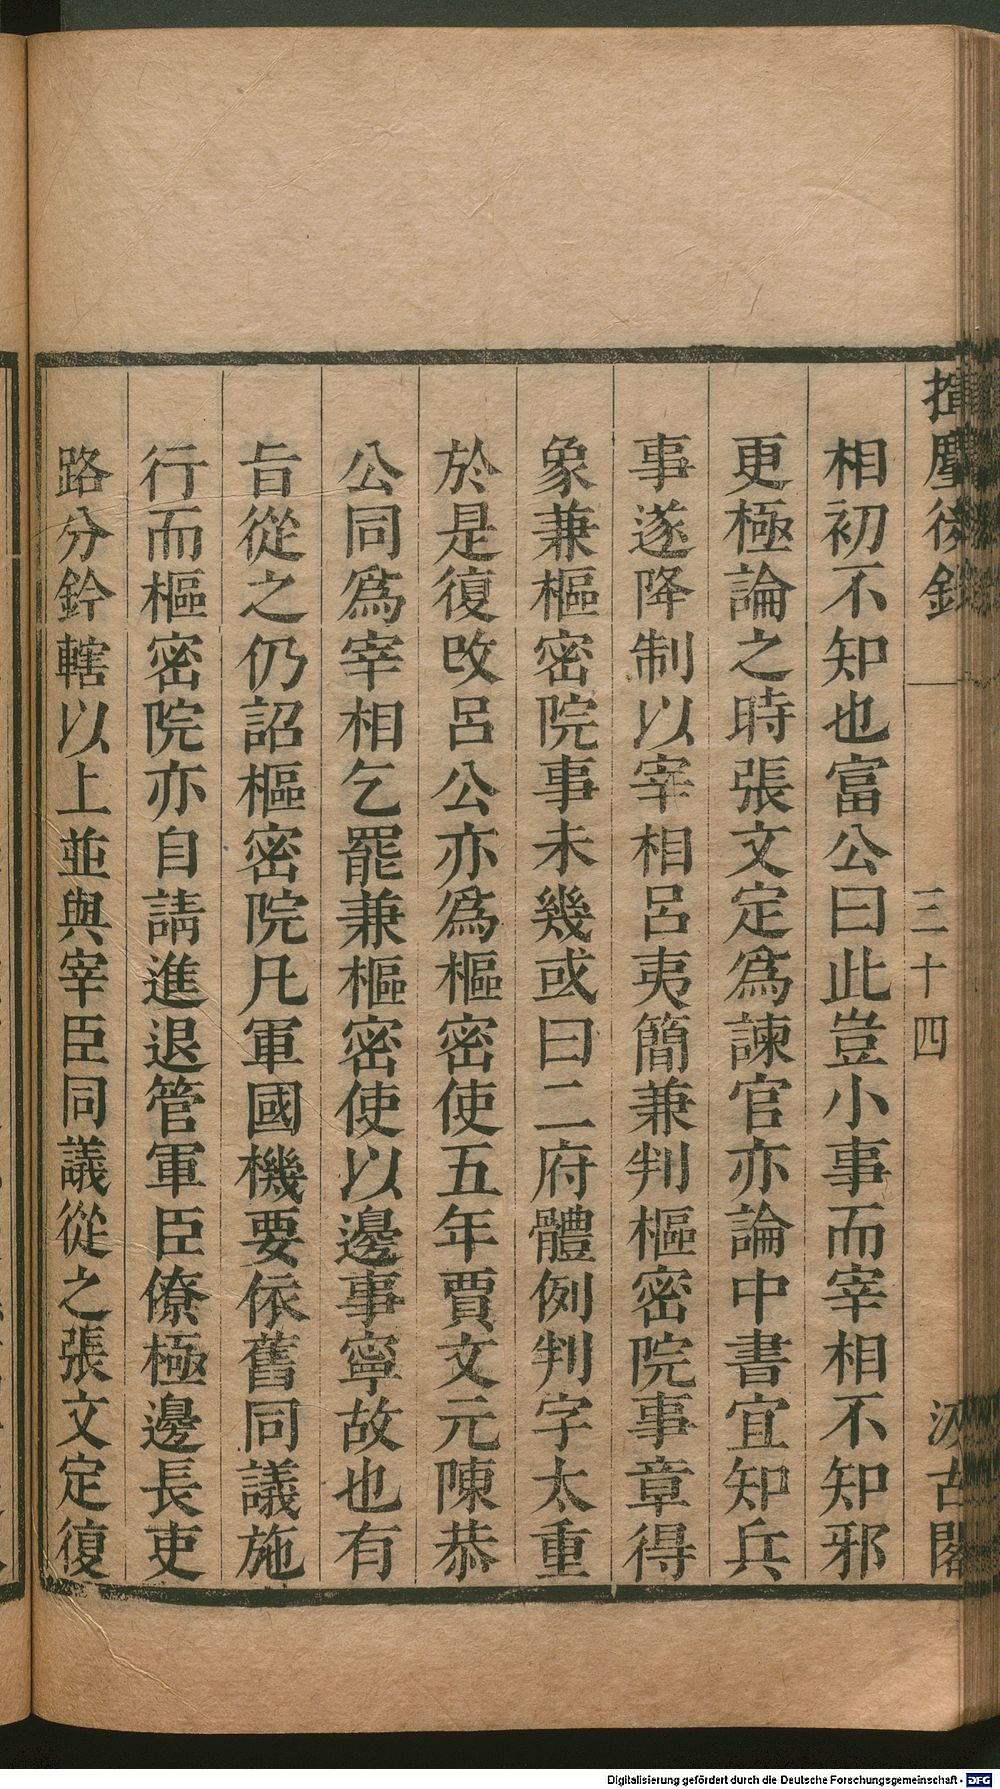 揮麈後錄
三十四
汲古閣
相初不知也富公曰此豈小事而宰相不知邪
更極論之時張文定爲諫官亦論中書宜知兵
事遂降制以宰相呂夷簡兼判樞密院事章得
象兼樞密院事未幾或曰二府體例判字太重
於是復改呂公亦爲樞密使五年賈文元陳恭
公同爲宰相乞罷兼樞密使以邊事寧故也有
旨從之仍詔樞密院凡軍國機要依舊同議施
行而樞密院亦自請進退管軍臣僚極邊長吏
路分鈐轄以上並與宰臣同議從之張文定復
Digitalisierung gefördert durch die Deutsche Forschungsgemeinschaft - DFG